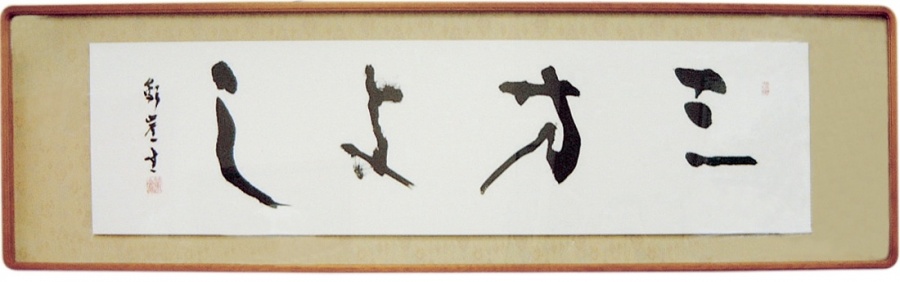 三方よし